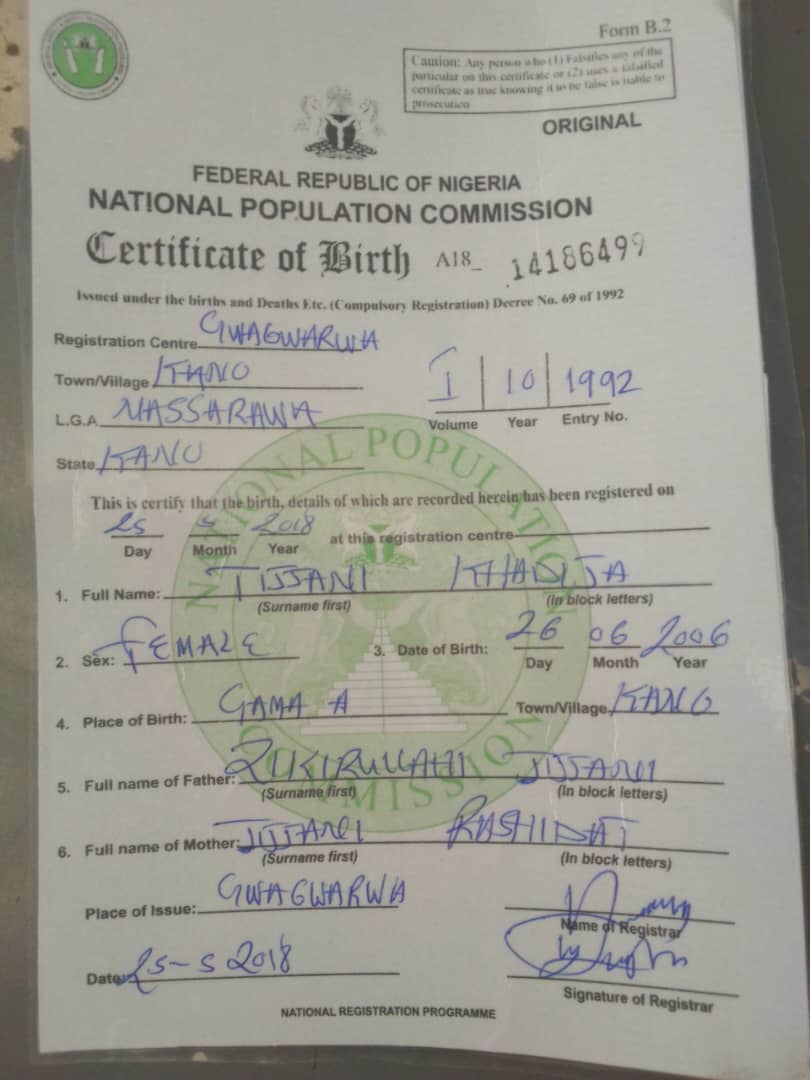 Form B.2
Caution: Any person who (1) Falsifies any of the
particular on this certificate or (2) uses a falsified
certificate as true knowing it to be false is liable to
prosecution
ORIGINAL
FEDERAL REPUBLIC OF NIGERIA
NATIONAL POPULATION COMMISSION
Certificate of Birth A18_ 14186499
Issued under the births and Deaths Etc. (Compulsory Registration) Decree No. 69 of 1992
Registration Centre GWAGWARWA
Town/Village KANO
L.G.A. NASSARAWA
State KANO
I 10 1992
Volume Year Entry No.
NATIONAL POPULATION COMMISSION
This is certify that the birth, details of which are recorded herein has been registered on
25 5 2018 at this registration centre
Day Month Year
1. Full Name: TIJJANI KHADIJA
(Surname first) (In block letters)
2. Sex: FEMALE 3. Date of Birth: 26 06 2006
Day Month Year
4. Place of Birth: GAMA A Town/Village KANO
5. Full name of Father: ZUKIRULLAHI TIJJANI
(Surname first) (In block letters)
6. Full name of Mother: TIJJANI RASHIDAT
(Surname first) (In block letters)
Place of Issue: GWAGWARWA
Name of Registrar
Date: 25-5 2018
Signature of Registrar
NATIONAL REGISTRATION PROGRAMME